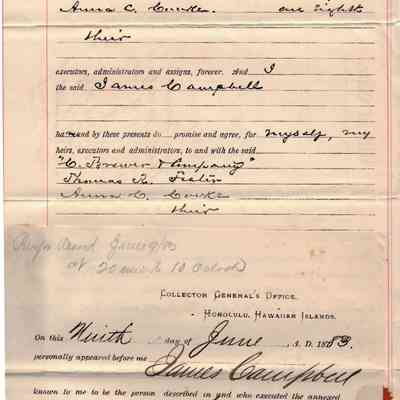 Anna C. Cooke. one Eighth
their
executors, administrators and assigns, forever. And I
the said James Campbell
ha and by these presents do promise and agree, for myself, my
heirs, executors and administrators, to and with the said
"C. Brewer & Company"
Thomas R. Foster
Anna C. Cooke
their
June 9/83
at 20 min to 10 O'clock
COLLECTOR GENERAL'S OFFICE,
HONOLULU, HAWAIIAN ISLANDS.
On this Ninth day of June A. D. 1883.
personally appeared before me James Campbell
known to me to be the person described in and who executed the annexed